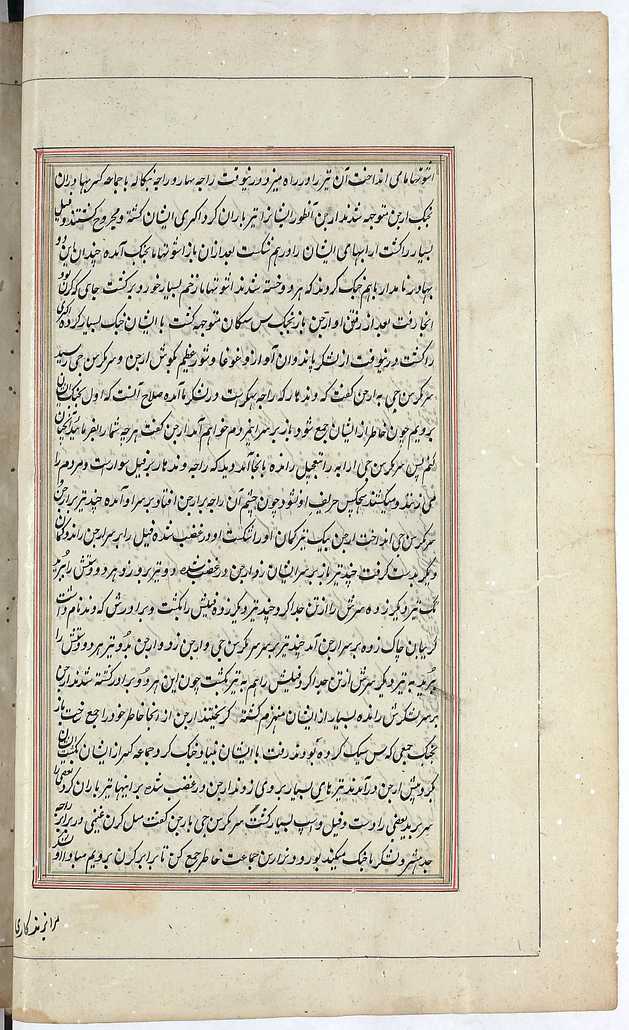 اشوتهاما می انداخت آن تیر را در راه میزد درینوقت راجه بهار و راجه بنگاله با جماعه کثیر بهادران
بجنگ ارجن متوجه شدند ارجن آنطور ایشانرا تیر باران کرد اکثری ایشان کشته و مجروح گشتند و فیل
بسیار را کشت ارابهای ایشان را درهم شکست بعد از آن باز اشوتهاما بجنگ آمده چندان این دو
بهادر نامدار باهم جنگ کردند که هر دو خسته شدند اشوتهاما زخم بسیار خورد برگشت جای که کرن بود
آنجا رفت بعد از رفتن او ارجن باز بجنگ سن سپتکان متوجه گشت با ایشان جنگ بسیار کرده اکثری
را کشت درینوقت از لشکر پاندوان آواز و غوغا و شور عظیم بگوش ارجن و سرکرسن جی رسید
سرکرسن جی به ارجن گفت که دندهار که راجه است در لشکر ما آمده صلاح آنست که اول بجنگ ایشان
برویم چون خاطر از ایشان جمع شود باز بر سر اینمردم خواهم آمد ارجن گفت هرچه شما بفرمائید آنچنان
کنم پس سرکرسن جی ارابه را بتعجیل رانده بانجا آمد دید که راجه دندهار بر فیل سوار است و مردم را
می زند و میکشد هیچکس حریف او نشود چون چشم آن راجه بر ارجن افتاد بر سر او آمده چند تیر بر ارجن و
سرکرسن جی انداخت ارجن بیک تیر کمان او را شکست او در غضب شده فیل را بر سر ارجن راند و کمان
دیگر بدست گرفت چند تیر باز بر سر ایشان زد ارجن در غضب شده دو تیر بر زد هر دو دستش را برید
یک تیر دیگر زده سرش را از تن جدا کرد چند تیر دیگر زده فیلش را بکشت و برادرش که دند نام داشت
گریبان چاک زده بر سر ارجن آمد چند تیر بر سر سرکرسن جی و ارجن زد و ارجن بدو تیر هر دو دستش را
برید به تیر دیگر سرش از تن جدا کرد فیلش را هم به تیر بکشت چون این هر دو برادر کشته شدند ارجن
بر سر لشکرش رانده بسیار از ایشان منهزم گشته گریختند ارجن از آنجا خاطر خود را جمع ساخت باز
بجنگ جمعی که سن سپتک کرده بودند رفت با ایشان بنیاد جنگ کرد جماعه کثیر از ایشان بکشت ایشان
گرد پیش ارجن درآمدند تیرهای بسیار بر وی زدند ارجن در غضب شده بر اینها تیر باران کرد بعضی را
سر برید بعضی را دست و فیل و اسپ بسیار کشت سرکرسن جی بارجن گفت مثل کرن غنیمی در برابر راجه
جدهشتر و لشکر ما جنگ میکند برو زود ازین جماعت خاطر جمع کن تا برابر کرن برویم مبادا او لشکر
ما را برند کاری